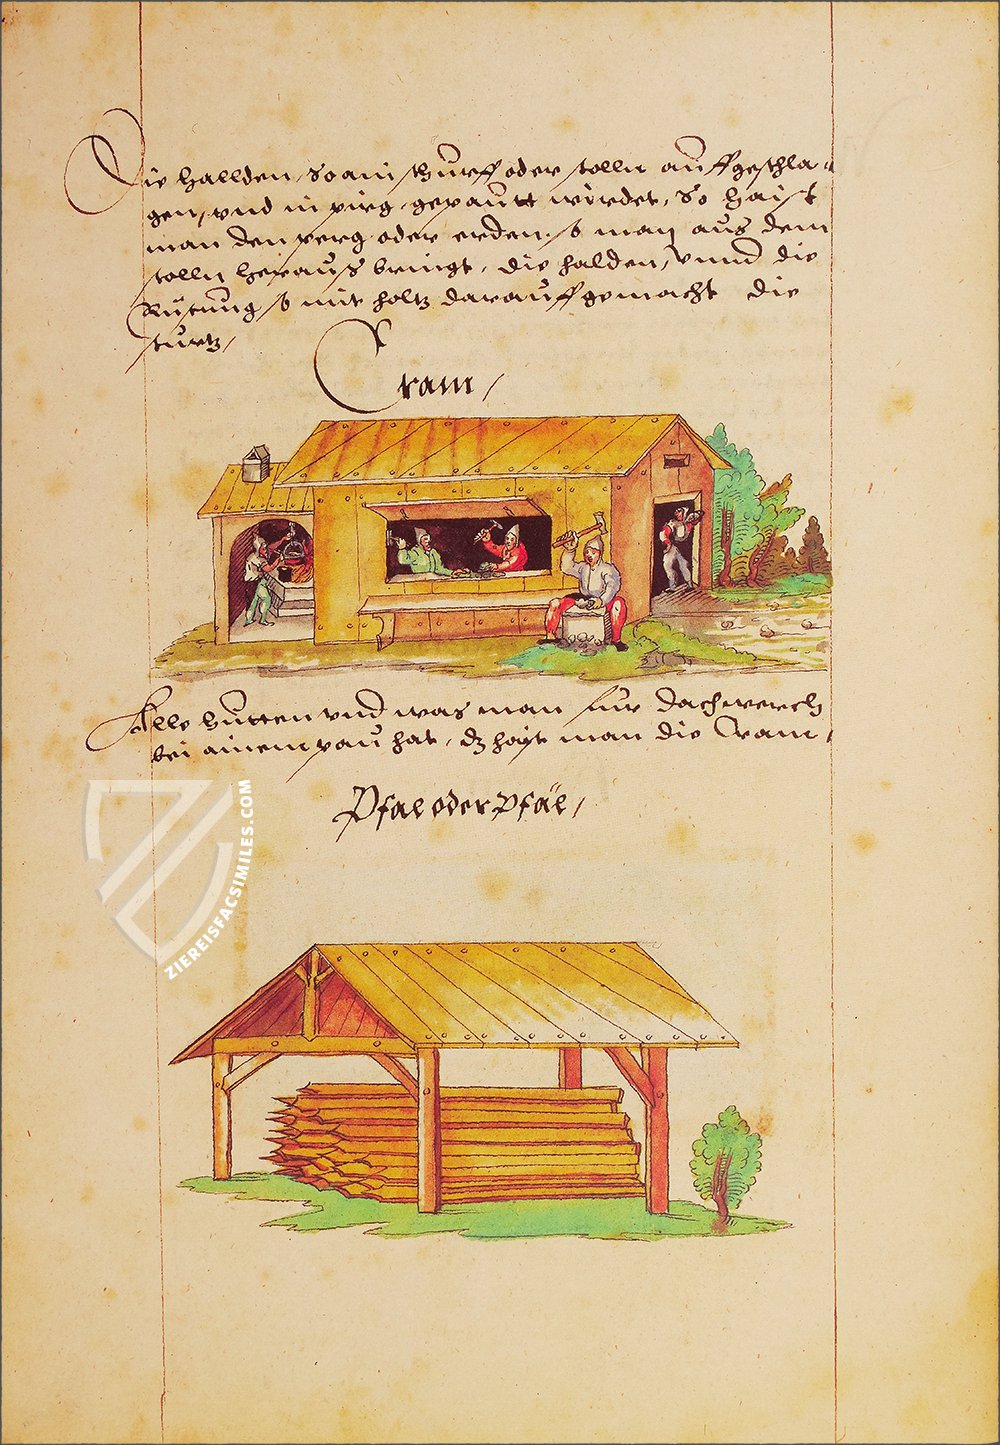 Die Hallden, So ain schurff oder stolln auffgeschla-
gen, vnd in pirg gepautt wirdet, So haist
man den perg oder erden, so man aus dem
stolln heraus bringt, die halden, Vnnd die
Rüstung so mit holtz darauff gemacht die
sturtz,
Cram,
Alle hutten vnd was man fur dachwerch
bei ainem pau hat, dz hayst man die Cram,
Pfal oder Pfäl,
ZIEREISFACSIMILES.COM